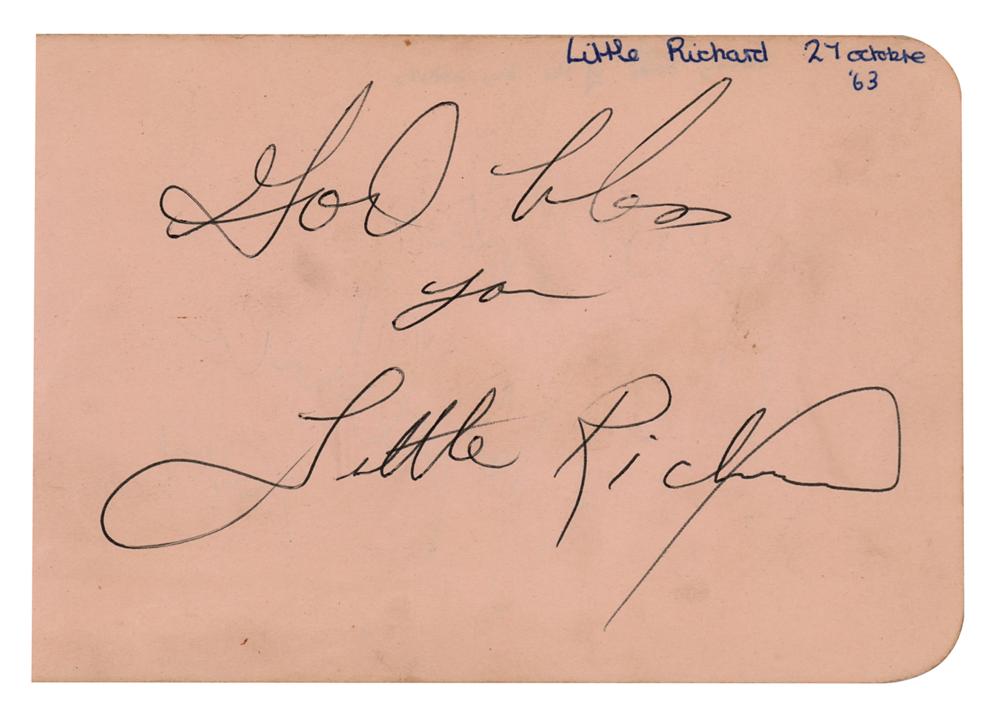 Little Richard 27 octobre
'63
God bless
you
Little Richard